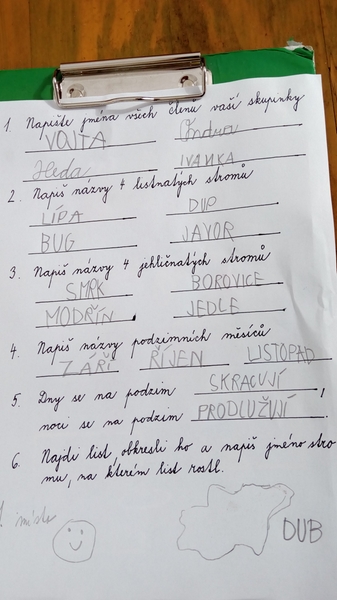 1. Napište jména všech členů vaší skupinky
VOJTA Ondura
Heda IVANKA
2. Napiš názvy 4 listnatých stromů
LÍPA DUP
BUG JAVOR
3. Napiš názvy 4 jehličnatých stromů
SMRK BOROVICE
MODŘÍN JEDLE
4. Napiš názvy podzimních měsíců
ZÁŘÍ ŘÍJEN LISTOPAD
5. Dny se na podzim SKRACUJÍ,
noci se na podzim PRODLUŽUJÍ.
6. Najdi list, obkresli ho a napiš jméno stro
mu, na kterém list rostl.
1. místo
DUB